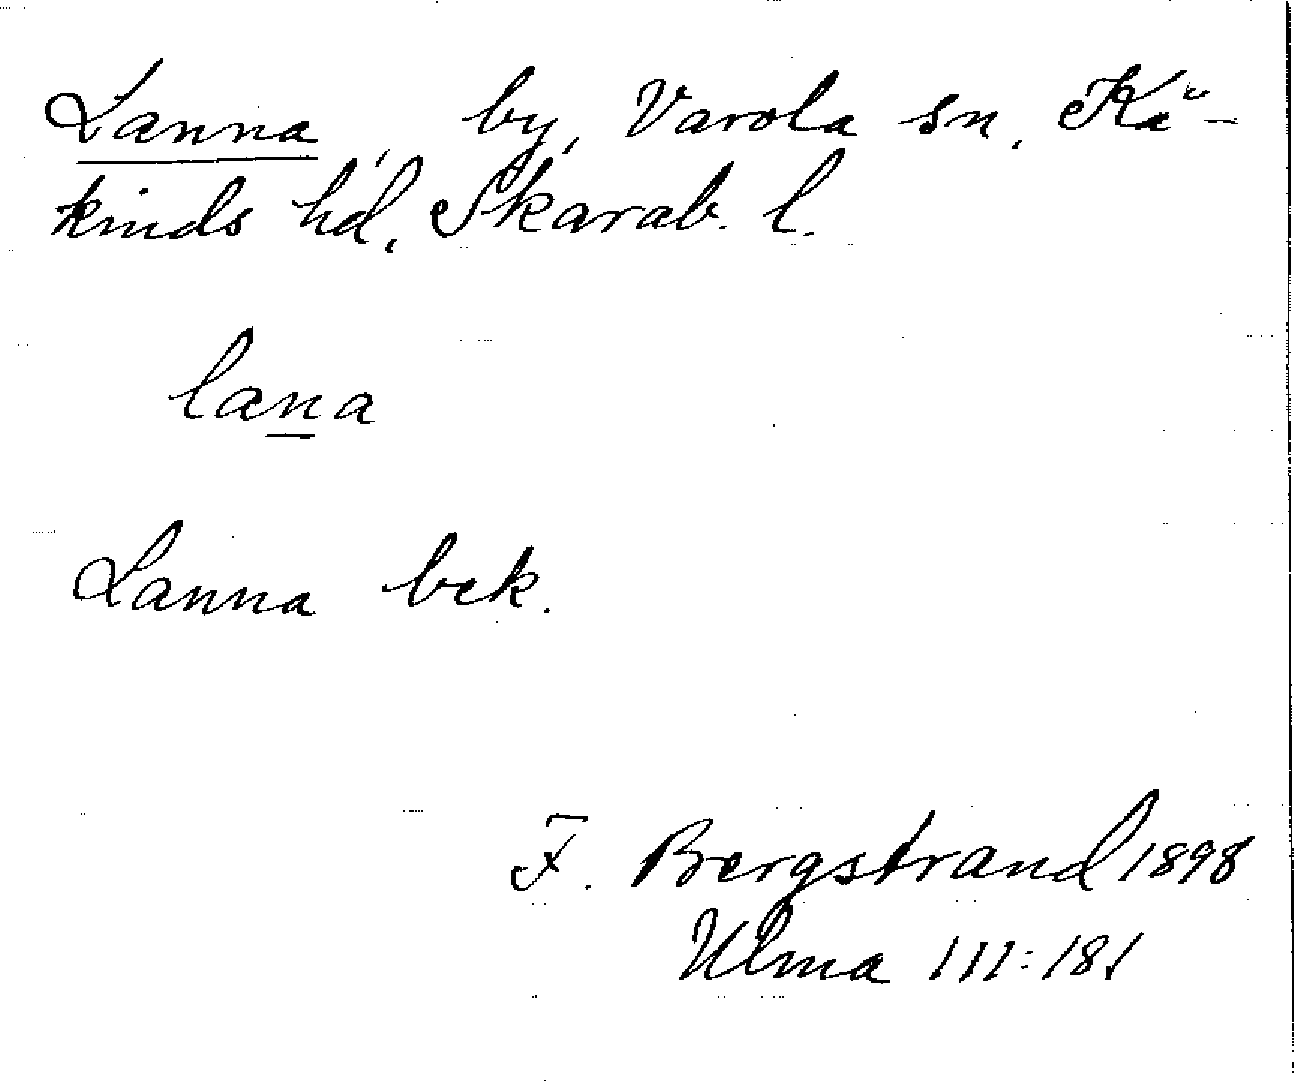 Lanna, by, Varola sn, Kå-
kinds hd, Skarab. l.
lana
Lanna bek.
F. Bergstrand 1898
Ulma 111:181